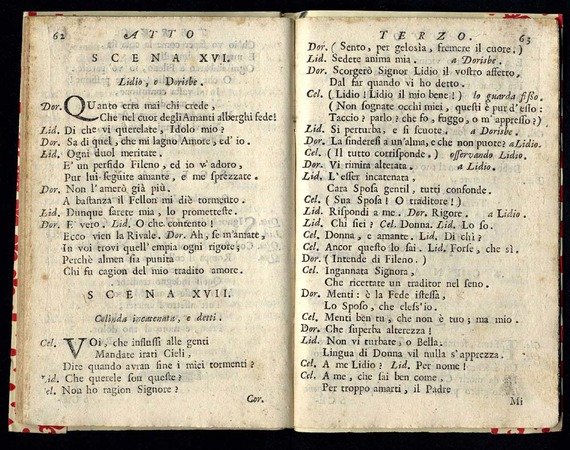 62 ATTO
SCENA XVI.
Lidio, e Dorisbe.
Dor. QUanto erra mai chi crede,
Che nel cuor degli Amanti alberghi fede!
Lid. Di che vi querelate, Idolo mio?
Dor. Sa di quel, che mi lagno Amore, ed' io.
Lid. Ogni duol meritate.
E' un perfido Fileno, ed io v' adoro,
Pur lui seguite amante, e me sprezzate.
Dor. Non l'amerò già più.
A bastanza il Fellon mi diè tormento.
Lid. Dunque sarete mia, lo promettete.
Dor. E vero. Lid. O che contento!
Ecco vien la Rivale. Dor. Ah, se m'amate,
In voi trovi quell' empia ogni rigore;
Perchè almen sia punita
Chi fu cagion del mio tradito amore.
SCENA XVII.
Celinda incatenata, e detti.
Cel. VOi, che influssi alle genti
Mandate irati Cieli,
Dite quando avran fine i miei tormenti?
Lid. Che querele son queste?
Cel. Non ho ragion Signore?
Cor.
TERZO. 63
Dor. (Sento, per gelosia, fremere il cuore.)
Lid. Sedete anima mia. a Dorisbe.
Dor. Scorgerò Signor Lidio il vostro affetto,
Dal far quando vi ho detto.
Cel. (Lidio! Lidio il mio bene!) lo guarda fisso.
(Non sognate occhi miei, questi è pur d'esso:
Taccio? parlo? che fo, fuggo, o m' appresso?)
Lid. Si perturba, e si scuote. a Dorisbe.
Dor. La sinderesi a un'alma, e che non puote? a Lidio.
Cel. (Il tutto corrisponde.) osservando Lidio.
Dor. Vi rimira alterata. a Lidio.
Lid. L'esser incatenata,
Cara Sposa gentil, tutti confonde.
Cel. (Sua Sposa! O traditore!)
Lid. Rispondi a me. Dor. Rigore. a Lidio.
Lid. Chi siei? Cel. Donna. Lid. Lo so.
Cel. Donna, e amante. Lid. Di chi?
Cel. Ancor questo lo sai. Lid. Forse, che sì.
Dor. (Intende di Fileno.)
Cel. Ingannata Signora,
Che ricettate un traditor nel seno.
Dor. Menti: è la Fede istessa,
Lo Sposo, che eless'io.
Cel. Menti ben tu, che non è tuo; ma mio.
Dor. Che superba alterezza!
Lid. Non vi turbate, o Bella.
Lingua di Donna vil nulla s'apprezza.
Cel. A me Lidio? Lid. Per nome!
Cel. A me, che sai ben come,
Per troppo amarti, il Padre
Mi